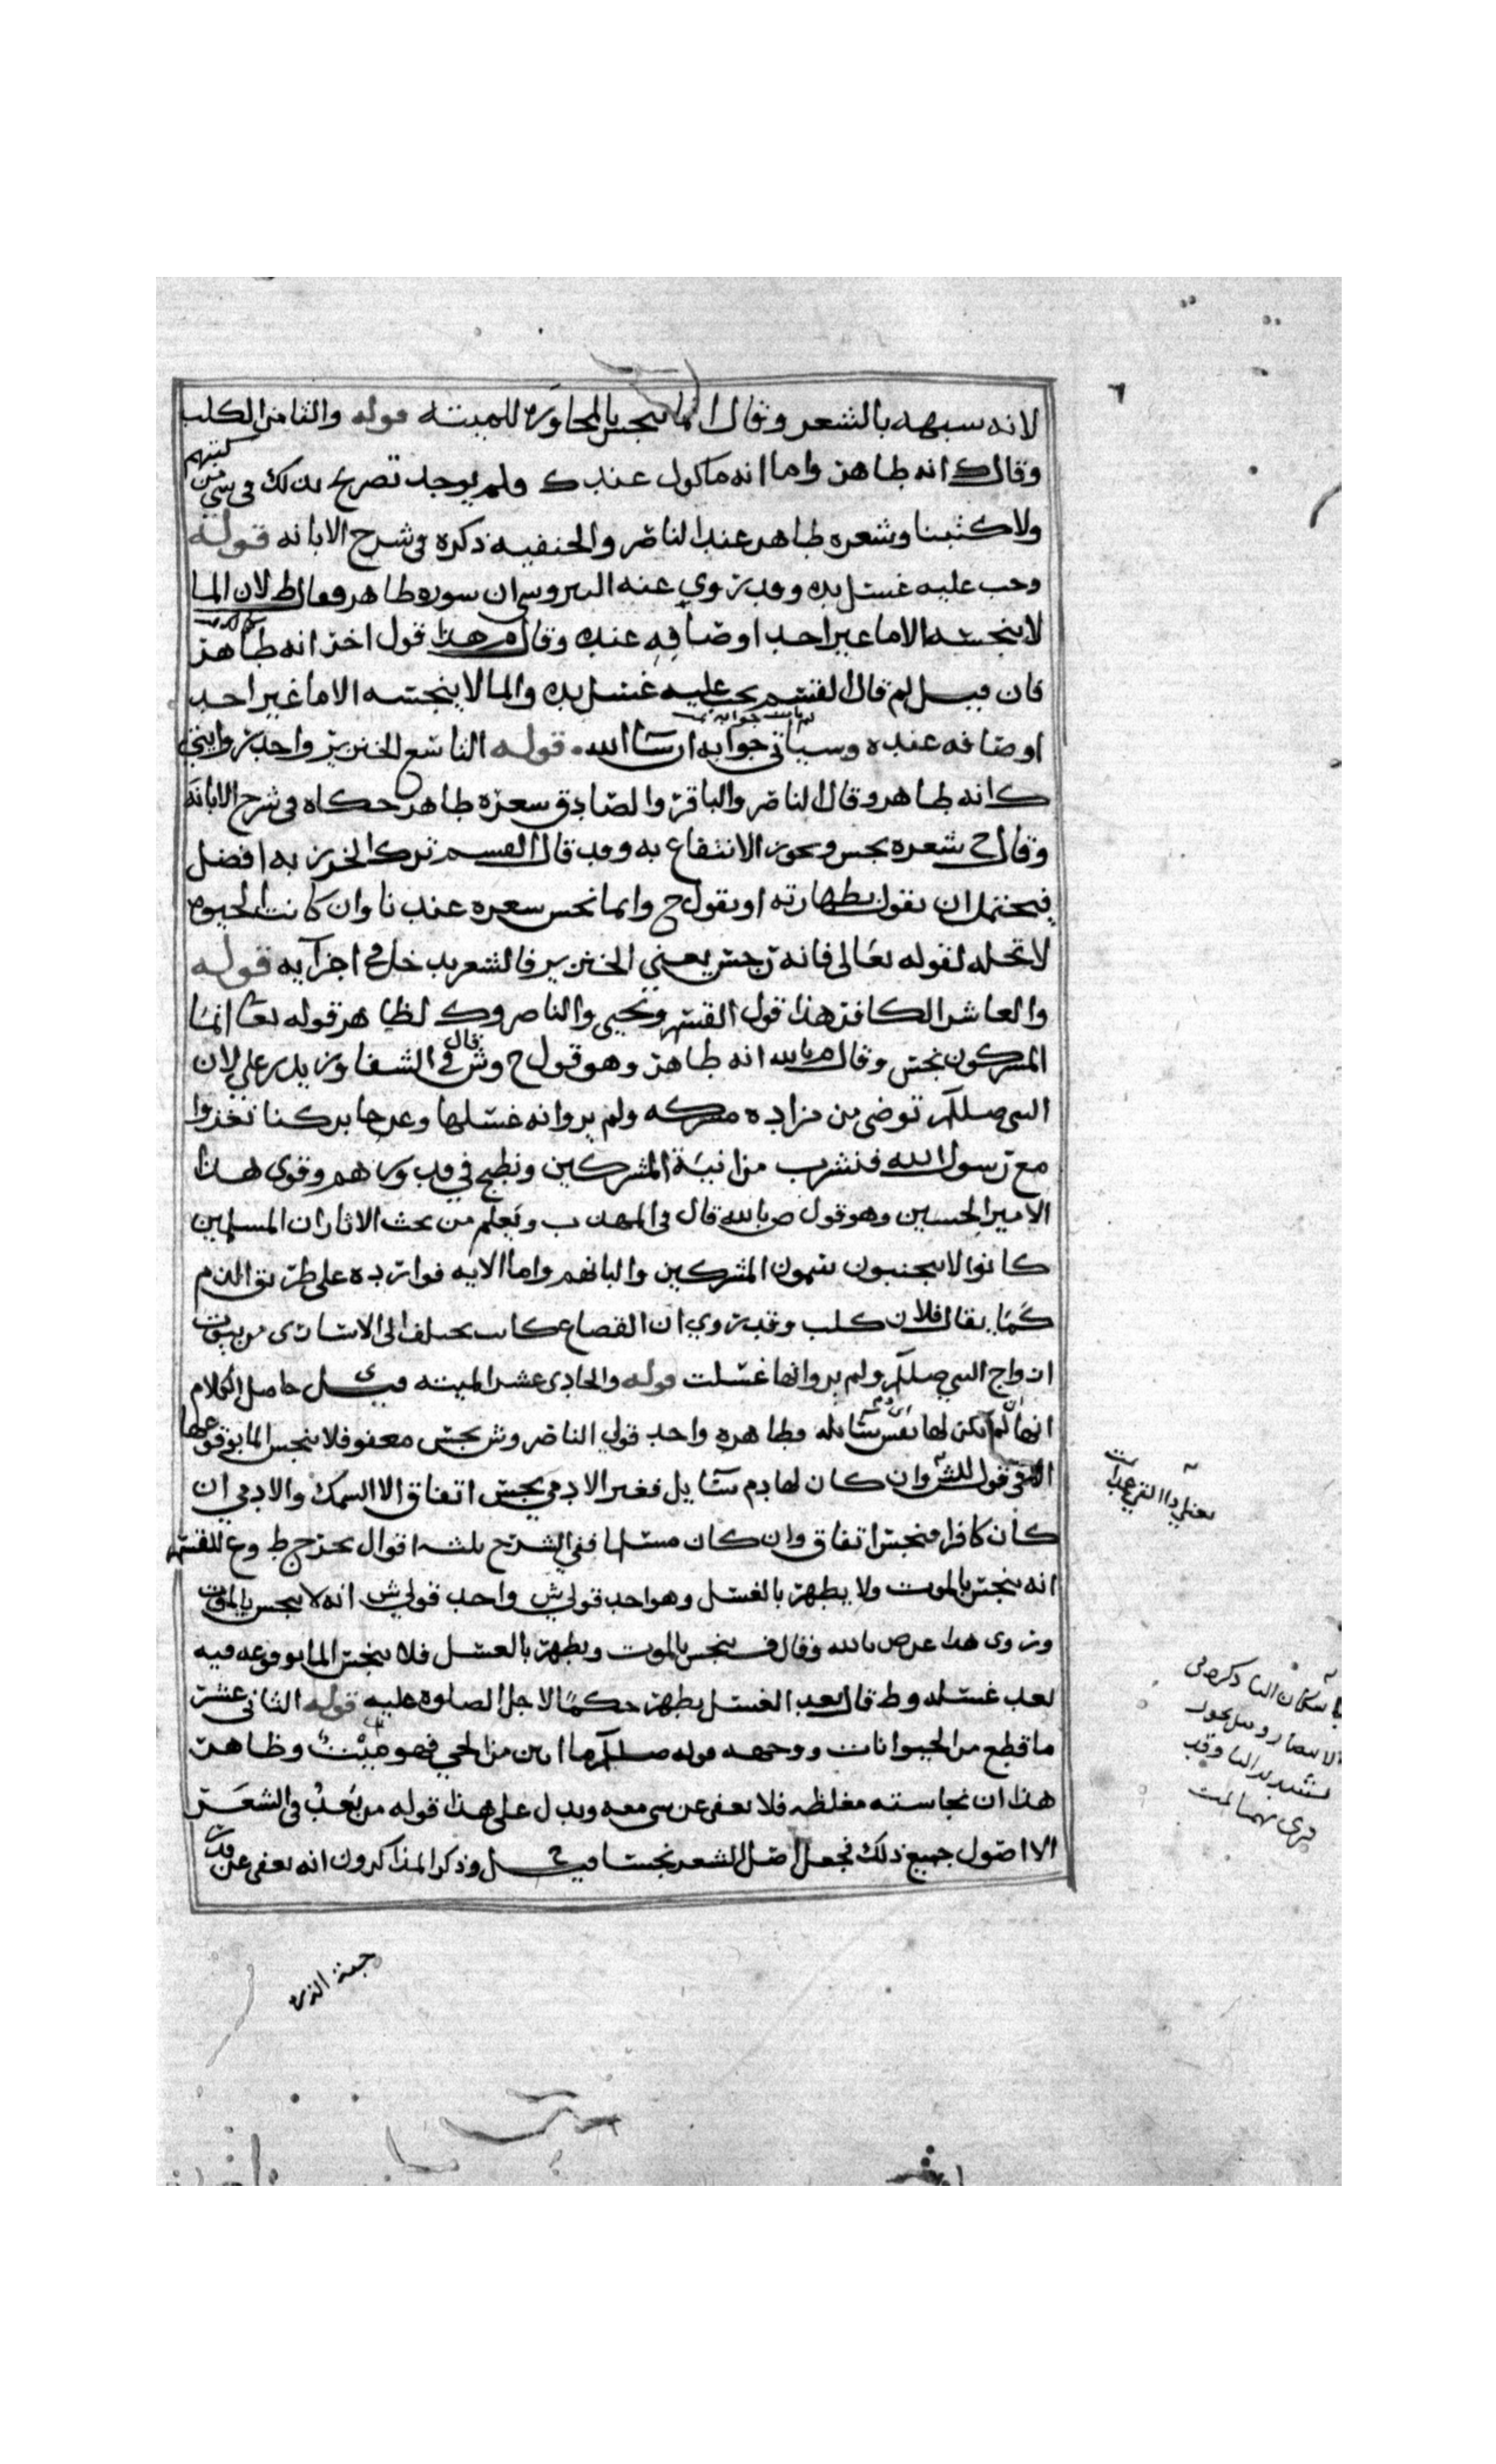 لانه سبهه بالشعر وقال انما ينجس بالمجاوره للميته قوله والثامن الكلب
وقال ك انه طاهر واما انه ماكول عند ك ولم يوجد تصريح بذلك في شي من كتبهم
ولا كتبنا وشعره طاهر عند الناصر والحنفيه ذكره في شرح الابانه قوله
وجب عليه غسل يده وقد روي عنه ان سوره طاهر فقال ط لان الما
لا ينجسه الا ما غير احد اوصافه عنده وقال م هذا قول اخر انه طاهر
فان قيل لم قال القسم يجب عليه غسل يده والما لا ينجسه الا ما غير احد
اوصافه عنده وسياتي جوابه ان شا الله قوله التاسع الخنزير واحد روايتي
ك انه طاهر وقال الناصر والباقر والصادق سعره طاهر حكاه في شرح الابانه
وقال ح شعره نجس ويجوز الانتفاع به وقد قال القسم ترك الخرز به افضل
فيحتمل ان يقول بطهارته او يقول ح وانما نجس سعره عندنا وان كانت الحيوه
لا تحله لقوله تعالى فانه رجس يعني الخنزير فالشعر يدخل في اجزآيه قوله
والعاشر الكافر هذا قول القسم ويحيى والناصر وك لظاهر قوله تعا انما
المشركون نجس وقال م بالله انه طاهر وهو قول ح وش قال في الشفا وزيد بن علي لان
النبي صللم توضى من مزاده مشركه ولم يروا انه غسلها وعن جابر كنا نغزوا
مع رسول الله فنشرب من انية المشركين ونطبخ في قدورهم وقوى هذا
الامير الحسين وهو قول ص بالله قال في المهذب ونعلم من بحث الاثار ان المسلمين
كانوا لا يجتنبون سمون المشركين والبانهم واما الايه فوارده على طريق الذم
كما يقال فلان كلب وقد روي ان القصاع كانت تختلف الى الاسارى من بيوت
ازواج النبي صللم ولم يروا انها غسلت قوله والحادى عشر الميته قيل ي حاصل الكلام
انها ان لم يكن لها نفس سائله فطاهره واحد قولي الناصر وش نجس معفو فلا ينجس الما بوقوعها
قول للش وان كان لها دم سايل فغير الادمي نجس اتفاق الا السمك والادمي ان
كان كافرا فنجس اتفاق وان كان مسلما ففي الشرح ثلثه اقوال تخريج ط وع للقسم
انه ينجس بالموت ولا يطهر بالغسل وهو احد قولي ش واحد قولي ش انه لا ينجس بالموت
وروى هذا عن ص بالله وقال ف ينجس بالموت ويطهر بالغسل فلا ينجس الما بوقوعه فيه
بعد غسله وط قال بعد الغسل يطهر حكما لاجل الصلوه عليه قوله الثاني عشر
ما قطع من الحيوانات ووجهه قوله صللم ما ابين من الحي فهو ميت وظاهر
هذا ان نجاسته مغلظه فلا يعفى عن شي معه ويدل على هذا قوله من بعد في الشعر
الا اصول جميع ذلك فجعل اصل الشعر نجسا قيل ح وذكر المذاكرون انه يعفى عن قدر